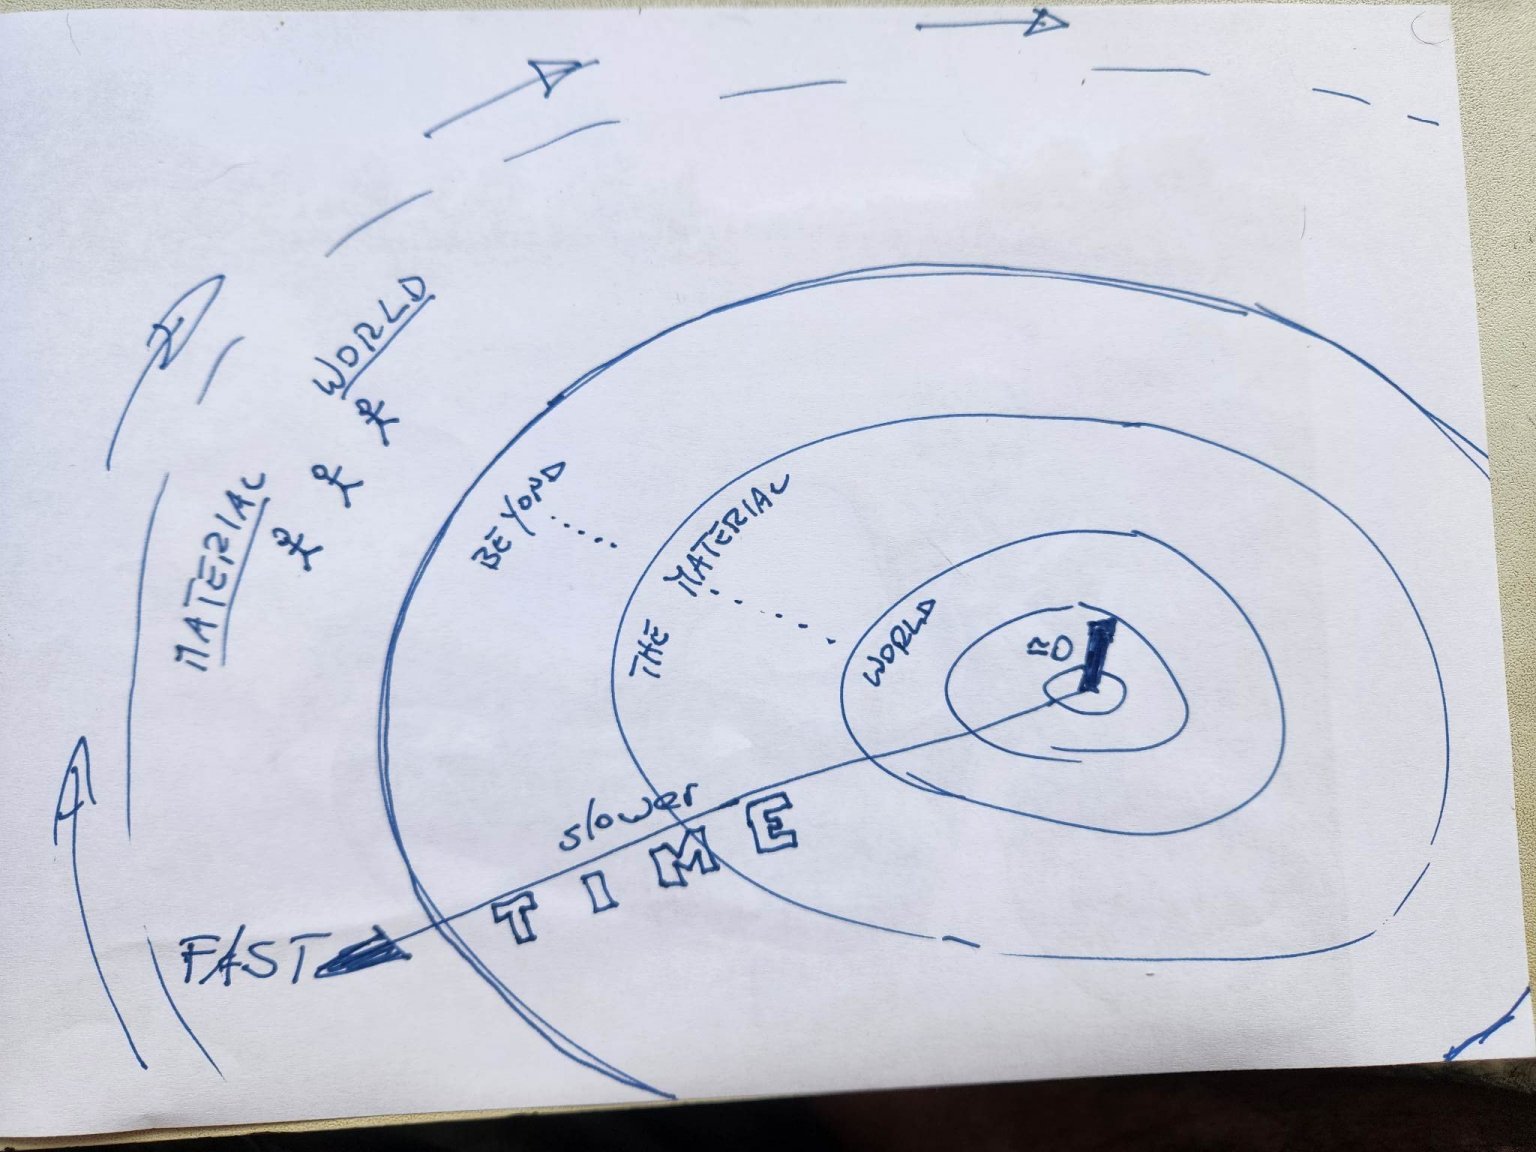 MATERIAL WORLD
BEYOND.....
THE MATERIAL.....
WORLD
≈0
slower
TIME
FAST